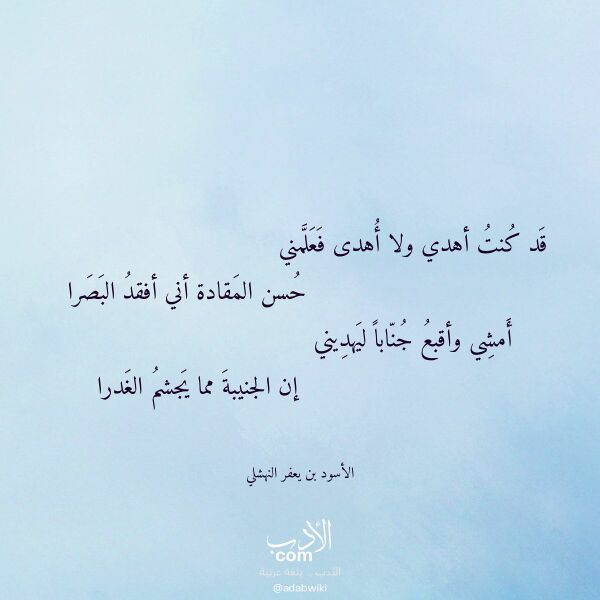 قَد كُنتُ أهدي ولا أُهدى فَعَلَّمني
حُسن المَقادة أني أفقدُ البَصَرا
أَمشِي وأقبعُ جُنّاباً ليَهدِيني
إن الجنيبةَ مما يَجشمُ الغَدرا
الأسود بن يعفر النهشلي
الأدب
com
الأدب .. بلغة عربية
@adabwiki